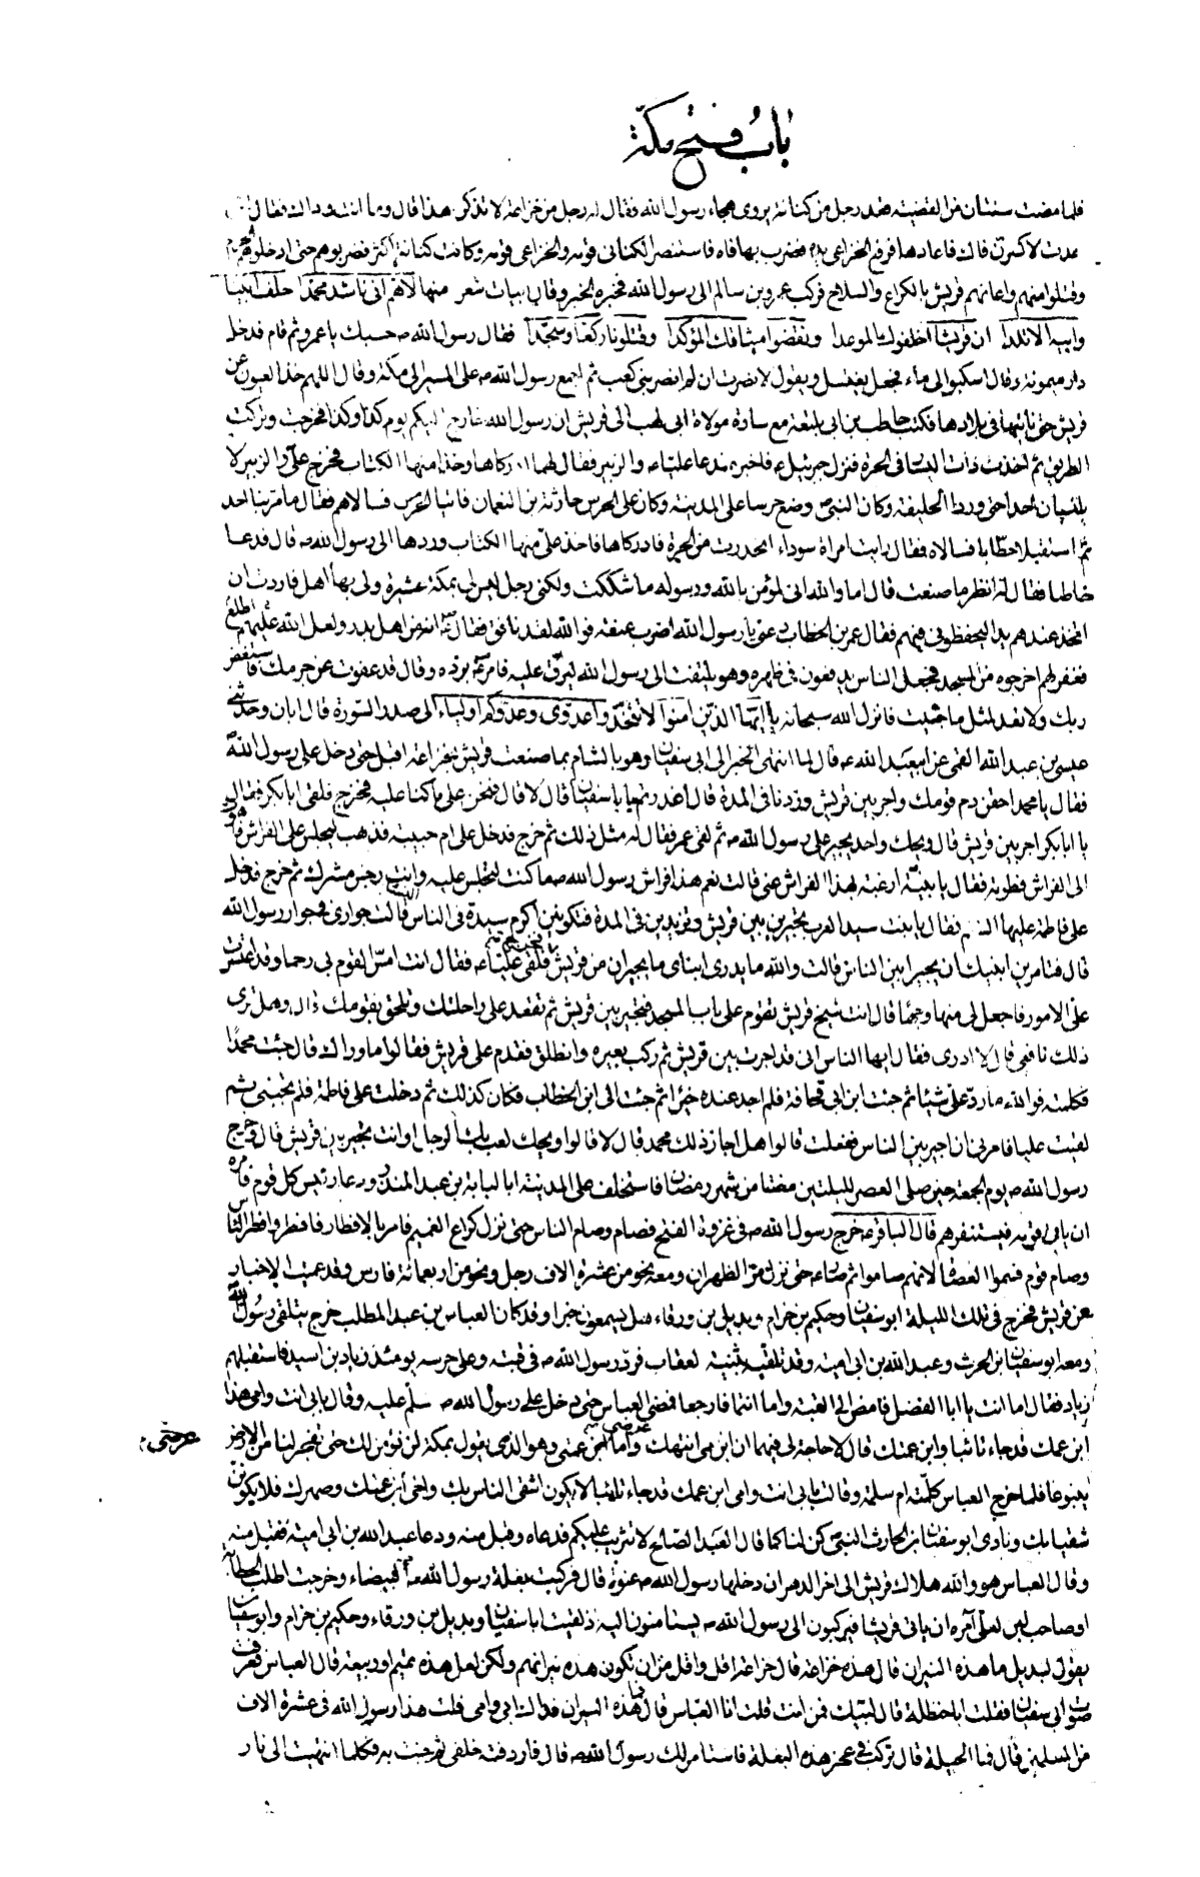 باب فتح مكة
فلما مضت سنتان من القضية قعد رجل من كنانة يروى هجاء رسول الله فقال له رجل من خزاعة لا تذكر هذا قال وما انت وذاك فقال لئن
عدت لاكسرن فاك فاعادها فرفع الخزاعى يده فضرب بها فاه فاستنصر الكنانى قومه والخزاعى قومه وكانت كنانة اكثر فضربوهم حتى ادخلوهم الحرم
وقتلوا منهم واعانهم قريش بالكراع والسلاح فركب عمرو بن سالم الى رسول الله فخبره الخبر وقال ابيات شعر منها لاهم انى ناشد محمدا حلف ابينا
وابيه الاتلدا ان قريشا اخلفوك الموعدا ونقضوا ميثاقك المؤكدا وقتلونا ركعا وسجدا فقال رسول الله ص حسبك يا عمرو ثم قام فدخل
دار ميمونة وقال اسكبوا لى ماء فجعل يغتسل ويقول لا نصرت ان لم انصر بنى كعب ثم اجمع رسول الله ص على المسير الى مكة وقال اللهم خذ العيون عن
قريش حتى ناتيها فى بلادها فكتب حاطب بن ابى بلتعة مع سارة مولاة ابى لهب الى قريش ان رسول الله خارج اليكم يوم كذا وكذا فخرجت وتركت
الطريق ثم اخذت ذات اليسار فى الحرة فنزل جبرئيل ع فاخبره فدعا عليا ع والزبير فقال لهما ادركاها وخذا منها الكتاب فخرج على والزبير لا
يلقيان احدا حتى وردا الحليفة وكان النبى ص وضع حرسا على المدينة وكان على الحرس حارثة بن النعمان فاتيا الحرس فسالاهم فقال ما مر بنا احد
ثم استقبلا حطابا فسالاه فقال رايت امراة سوداء انحدرت من الحرة فادركاها فاخذ على منها الكتاب وردها الى رسول الله ص قال فدعا
حاطبا فقال له انظر ما صنعت قال اما والله انى لمؤمن بالله ورسوله ما شككت ولكنى رجل ليس لى بمكة عشيرة ولى بها اهل فاردت ان
اتخذ عندهم يدا ليحفظونى فيهم فقال عمر بن الخطاب دعنى يا رسول الله اضرب عنقه فوالله لقد نافق فقال ص انه من اهل بدر ولعل الله اطلع عليهم
فغفر لهم اخرجوه من المسجد فجعل الناس يدفعون فى ظهره وهو يلتفت الى رسول الله ليرق عليه فامر ص برده وقال قد عفوت عن جرمك فاستغفر
ربك ولا تعد لمثل ما جئيت فانزل الله سبحانه يا ايها الذين امنوا لا تتخذوا عدوى وعدوكم اولياء الى صدر السورة قال ابان وحدثنى
عيسى بن عبد الله القمى عن ابيعبد الله ع قال لما انتهى الخبر الى ابى سفيان وهو بالشام بما صنعت قريش بخزاعة اقبل حتى دخل على رسول الله ص
فقال يا محمد احقن دم قومك واجر بين قريش وزدنا فى المدة قال اغدرتم يا با سفيان قال لا قال فنحن على ما كنا عليه فخرج فلقى ابا بكر فقال
يا ابا بكر اجر بين قريش قال ويحك واحد يجير على رسول الله ص ثم لقى عمر فقال له مثل ذلك ثم خرج فدخل على ام حبيبة فذهب ليجلس على الفراش فاهوت
الى الفراش فطوته فقال يا بنية ارغبة بهذا الفراش عنى قالت نعم هذا فراش رسول الله ص ما كنت لتجلس عليه وانت رجس مشرك ثم خرج فدخل
على فاطمة عليها السلام فقال يا بنت سيد العرب تجيرين بين قريش وتزيدين فى المدة فتكونين اكرم سيدة فى الناس قالت جوارى فى جوار رسول الله
قال فتامرين ابنيك ان يجيرا بين الناس قالت والله ما يدرى ابناى ما يجيران من قريش فلقى عليا ع فقال انت امس القوم بى رحما وقد اعتسرت
على الامور فاجعل لى منها وجها قال انت شيخ قريش تقوم على باب المسجد فتجير بين قريش ثم تقعد على راحلتك وتلحق بقومك قال وهل ترى
ذلك نافعى قال لا ادرى فقال ايها الناس انى قد اجرت بين قريش ثم ركب بعيره وانطلق فقدم على قريش فقالوا ما وراك قال جئت محمدا
فكلمته فوالله ما رد على شيئا ثم جئت ابن ابى قحافة فلم اجد عنده خيرا ثم جئت الى ابن الخطاب فكان كذلك ثم دخلت على فاطمة فلم تجبنى ثم
لقيت عليا فامرنى ان اجير بين الناس ففعلت قالوا هل اجاز ذلك محمد قال لا قالوا ويحك لعب بك الرجل اوانت تجير بين قريش قال وخرج
رسول الله ص يوم الجمعة حين صلى العصر لليلتين مضتا من شهر رمضان فاستخلف على المدينة ابا لبابة بن عبد المنذر ودعا رئيس كل قوم فامره
ان ياتى قومه فيستنفرهم قال الباقر ع خرج رسول الله ص فى غزوة الفتح فصام وصام الناس حتى نزل كراع الغميم فامر بالافطار فافطر وافطر الناس
وصام قوم فسموا العصاة لانهم صاموا ثم سار ع حتى نزل مر الظهران ومعه نحو من عشرة الاف رجل ونحو من اربعمائة فارس وقد عميت الاخبار
عن قريش فخرج فى تلك الليلة ابو سفيان وحكيم بن حزام وبديل بن ورقاء هل يسمعون خبرا وقد كان العباس بن عبد المطلب خرج يتلقى رسول الله
ومعه ابو سفيان بن الحرث وعبد الله بن ابى امية وقد تلقيه بثنية العقاب فرد رسول الله ص فى قبته وعلى حرسه يومئذ زياد بن اسيد فاستقبلهم
زياد فقال اما انت يا ابا الفضل فامض الى القبة واما انتما فارجعا فمضى العباس حتى دخل على رسول الله ص سلم عليه وقال بابى انت وامى هذا
ابن عمك قد جاء تائبا وابن عمتك قال لا حاجة لى فيهما ان ابن عمى انتهك عرضى واما ابن عمتى وهو الذى يقول بمكة لن نؤمن لك حتى تفجر لنا من الارض
عرضى
ينبوعا فلما خرج العباس كلمته ام سلمة وقالت بابى انت وامى ابن عمك قد جاء تائبا لا يكون اشقى الناس بك واخى ابن عمتك وصهرك فلا يكونن
شقيا بك ونادى ابو سفيان بن الحارث النبى ص كن لنا كما قال العبد الصالح لا تثريب عليكم فدعاه وقبل منه ودعا عبد الله بن ابى امية فقبل منه
وقال العباس هو والله هلاك قريش الى اخر الدهر ان دخلها رسول الله ص عنوة قال فركبت بغلة رسول الله ص البيضاء وخرجت اطلب الحطابة
او صاحب لبن لعلى آمره ان ياتى قريشا فيركبون الى رسول الله ص يستامنون اليه اذ لقيت ابا سفيان وبديل بن ورقاء وحكيم بن حزام وابو سفيان
يقول لبديل ما هذه النيران قال هذه خزاعة قال خزاعة اقل واقل من ان تكون هذه نيرانهم ولكن لعل هذه تميم او ربيعة قال العباس فعرفت
صوت ابى سفيان فقلت ابا حنظلة قال لبيك فمن انت قلت انا العباس قال فما هذه النيران فداك ابى وامى قلت هذا رسول الله فى عشرة الاف
من المسلمين قال فما الحيلة قال تركب فى عجز هذه البغلة فاستامن لك رسول الله ص قال فاردفته خلفى ثم جئت به فكلما انتهيت الى نار